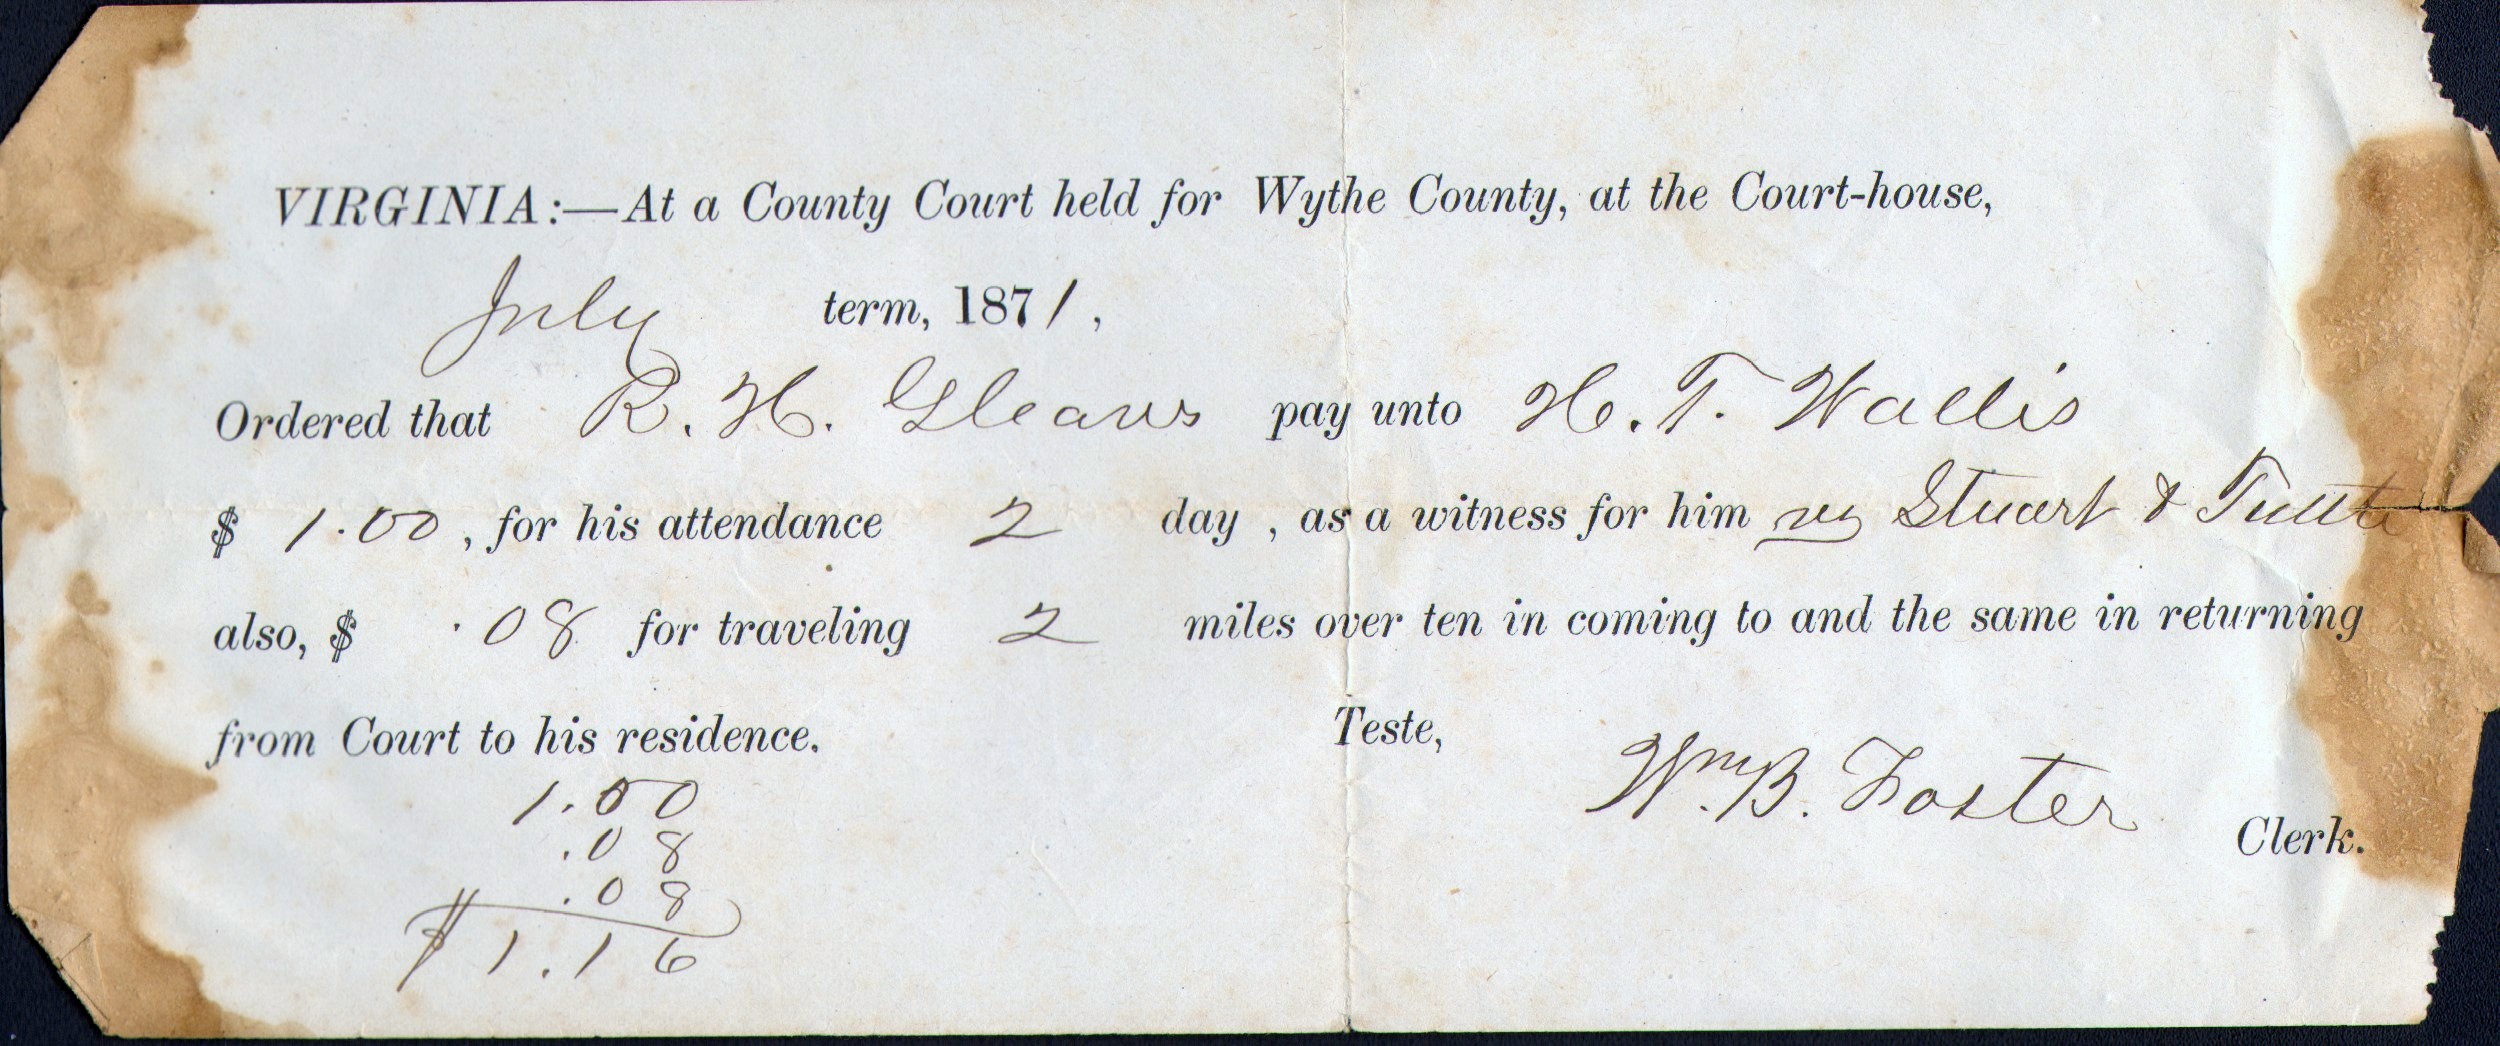 VIRGINIA:—At a County Court held for Wythe County, at the Court-house,
July term, 1871,
Ordered that R. H. Gleaves pay unto H. T. Wallis
$ 1.00, for his attendance 2 day , as a witness for him vs Stuart &
also, $ .08 for traveling 2 miles over ten in coming to and the same in returning
from Court to his residence. Teste,
Wm. B. Foster Clerk.
1.00
.08
.08
$1.16